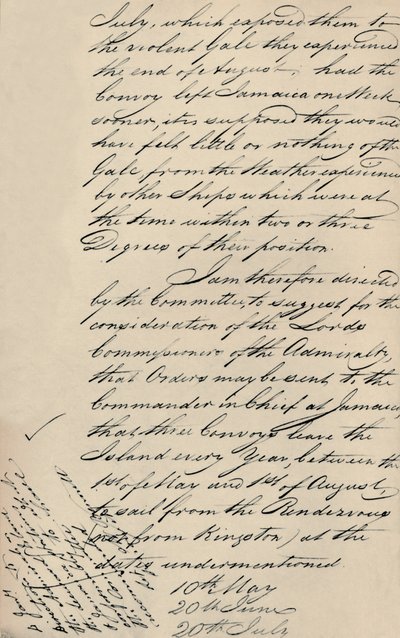 July, which exposed them to
the violent Gale they experienced
the end of August, had the
Convoy left Jamaica one Week
sooner, it is supposed they would
have felt little or nothing of the
Gale, from the Weather experienced
by other Ships which were at
the time within two or three
Degrees of their position.
I am therefore directed
by the Committee, to suggest for the
consideration of the Lords
Commissioners of the Admiralty,
that Orders may be sent to the
Commander in Chief at Jamaica,
that three Convoys leave the
Island every Year, between the
1st of May and 1st of August,
to sail from the Rendezvous
(not from Kingston) at the
dates undermentioned.
10th May
20th June
20th July